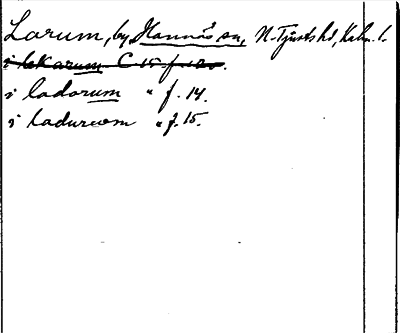 Lorum, by, Hannäs sn, N. Tjusts hd, Kalm. l.
i lekarum C 15 f. 120.
i ladorum " f. 14.
i ladureom " f. 15.